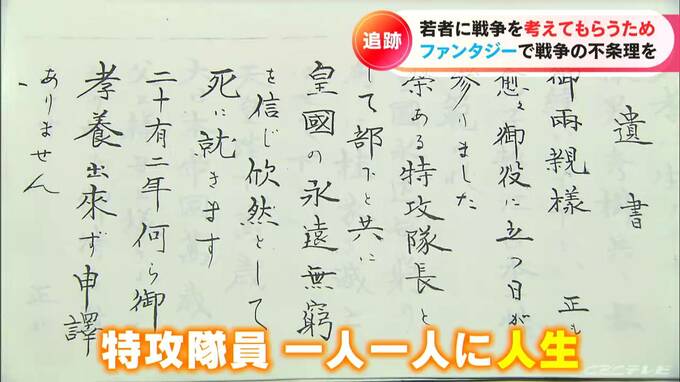 追跡
若者に戦争を考えてもらうため
ファンタジーで戦争の不条理を
遺書
御両親様
愈々御役に立つ日が
参りました
栄ある特攻隊長と
して部下と共に
皇國の永遠無窮
を信じ欣然として
死に就きます
二十有二年何ら御
孝養出來ず申譯
ありません
特攻隊員 一人一人に人生
CBCテレビ